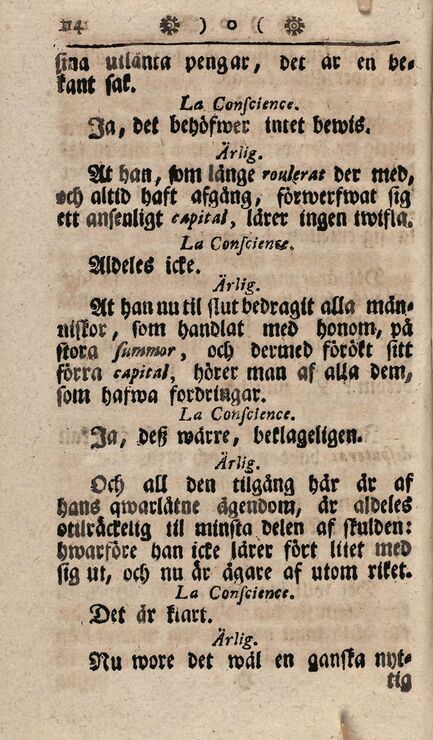 114 ) o (
sina utlänta pengar, det är en be-
kant sak.
La Conscience.
Ja, det behöfwer intet bewis.
Ärlig.
At han, som länge roulerat der med,
och altid haft afgång, förwerfwat sig
ett ansenligt capital, lärer ingen twifla.
La Conscience.
Aldeles icke.
Ärlig.
At han nu til slut bedragit alla män-
niskor, som handlat med honom, på
stora summor, och dermed förökt sitt
förra capital, hörer man af alla dem,
som hafwa fordringar.
La Conscience.
Ja, deß wärre, beklageligen.
Ärlig.
Och all den tilgång här är af
hans qwarlåtne ägendom, är aldeles
otilräckelig til minsta delen af skulden:
hwarföre han icke lärer fört litet med
sig ut, och nu är ägare af utom riket.
La Conscience.
Det är klart.
Ärlig.
Nu wore det wäl en ganska nyt-
tig